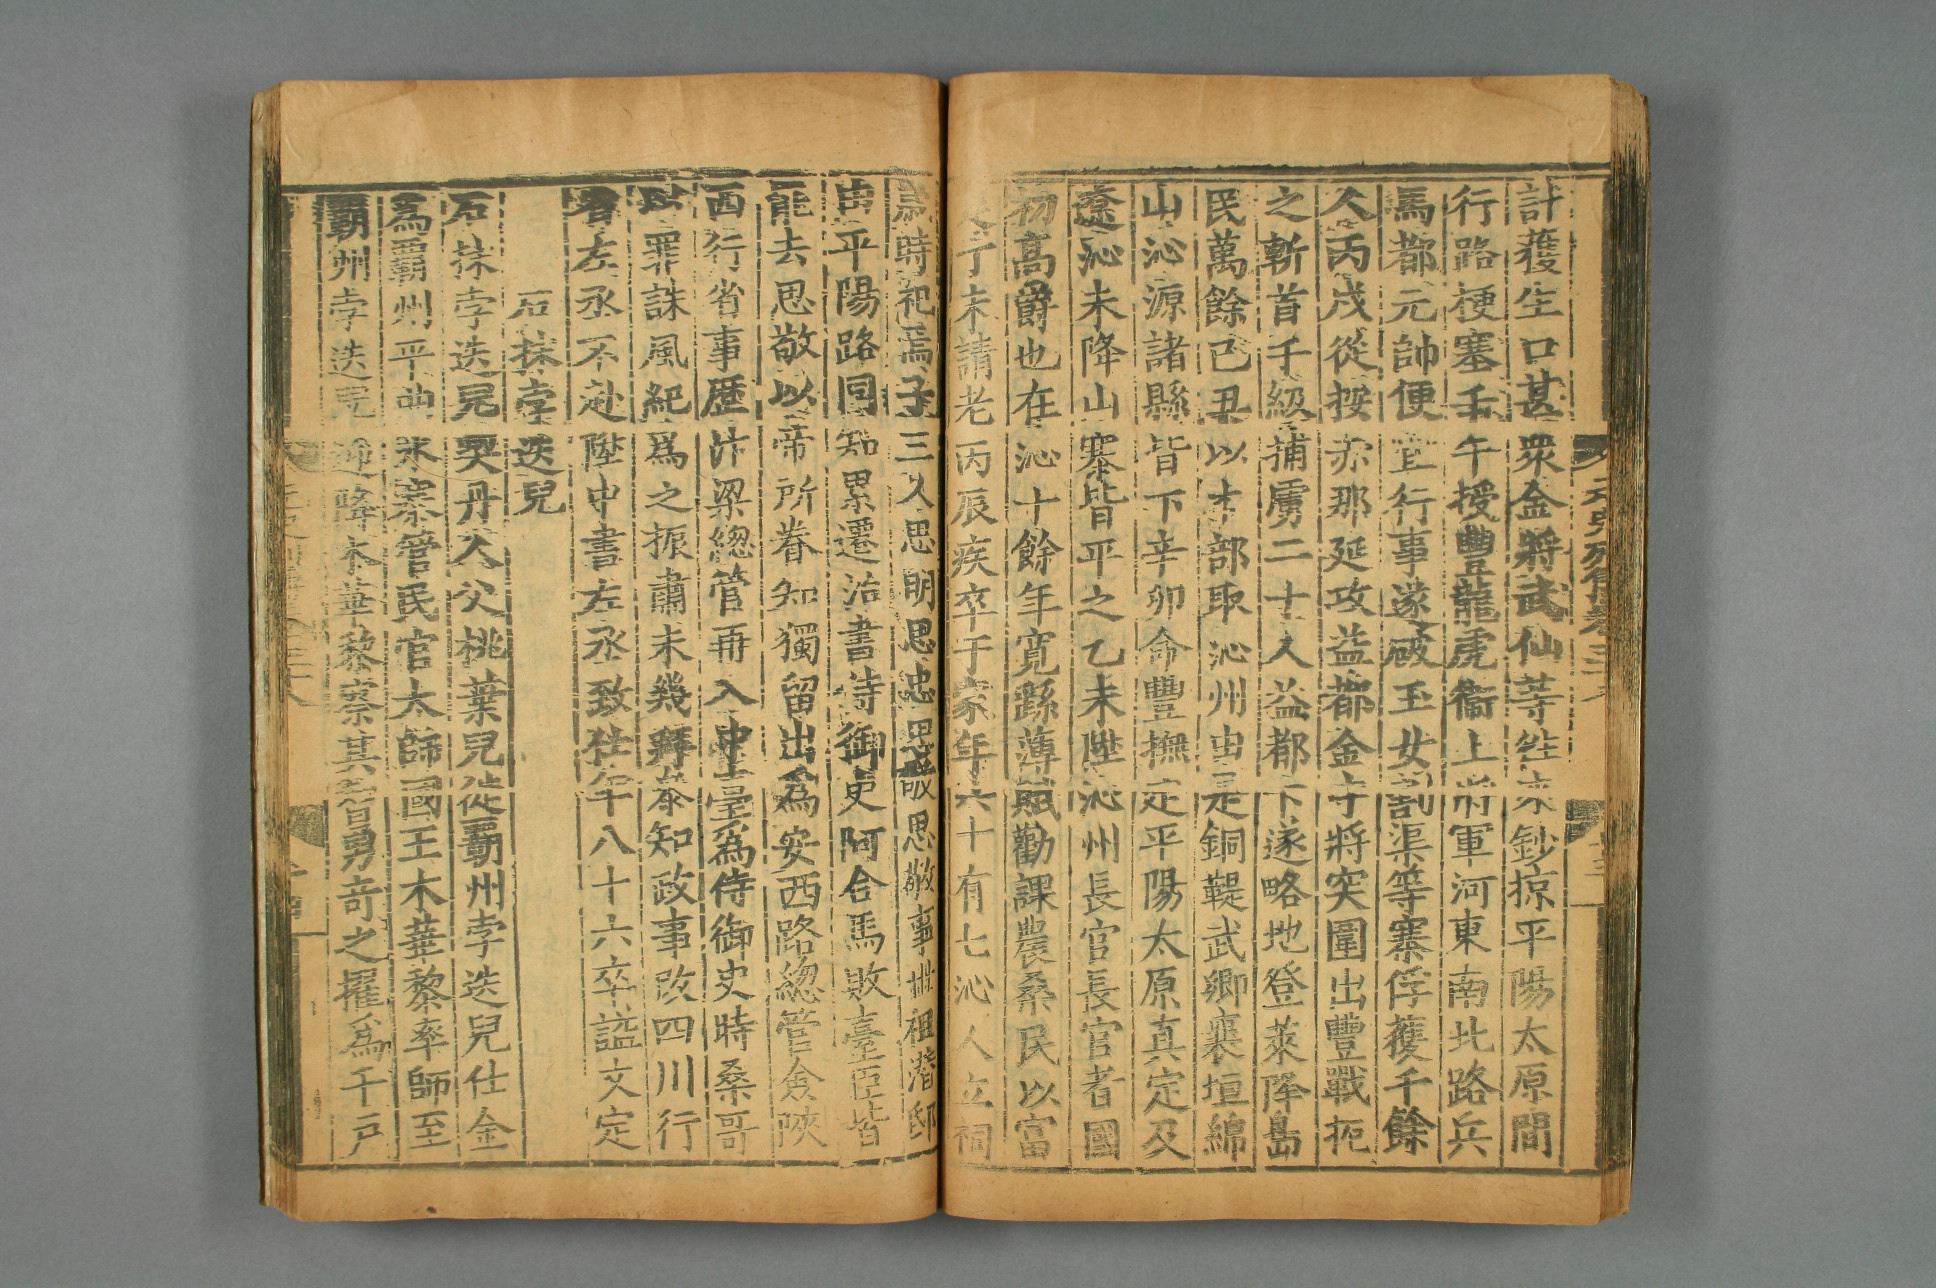 計獲生口甚衆金將武仙等往來鈔掠平陽太原間
行路梗塞壬午授豐龍虎衞上將軍河東南北路兵
馬都元帥便宜行事遂破玉女割渠等寨俘獲千餘
人丙戌從按赤那延攻益都金守將突圍出豐戰扼
之斬首千級捕虜二十人益都下遂略地登萊降島
民萬餘己丑以本部取沁州由是銅鞮武鄉襄垣綿
山沁源諸縣皆下辛卯命豐撫定平陽太原真定及
遼沁未降山寨皆平之乙未陞沁州長官長官者國
初高爵也在沁十餘年寛繇薄賦勸課農桑民以富
丁未請老丙辰疾卒于家年六十有七沁人立祠
歲時祀焉子三人思明思忠思敬思敬事世祖潛邸
由平陽路同知累遷治書侍御史阿合馬敗臺臣皆
罷去思敬以帝所眷知獨留出為安西路總管僉陝
西行省事歷汴梁總管再入中臺為侍御史時桑哥
以罪誅風紀為之振肅未幾拜叅知政事改四川行
省左丞不赴陞中書左丞致仕年八十六卒謚文定
石抹孛迭兒
石抹孛迭兒契丹人父桃葉兒徙霸州孛迭兒仕金
為霸州平曲水寨管民官太師國王木華黎率師至
霸州孛迭兒迎降木華黎察其智勇奇之擢為千戶
元史列傳卷三十八
十三